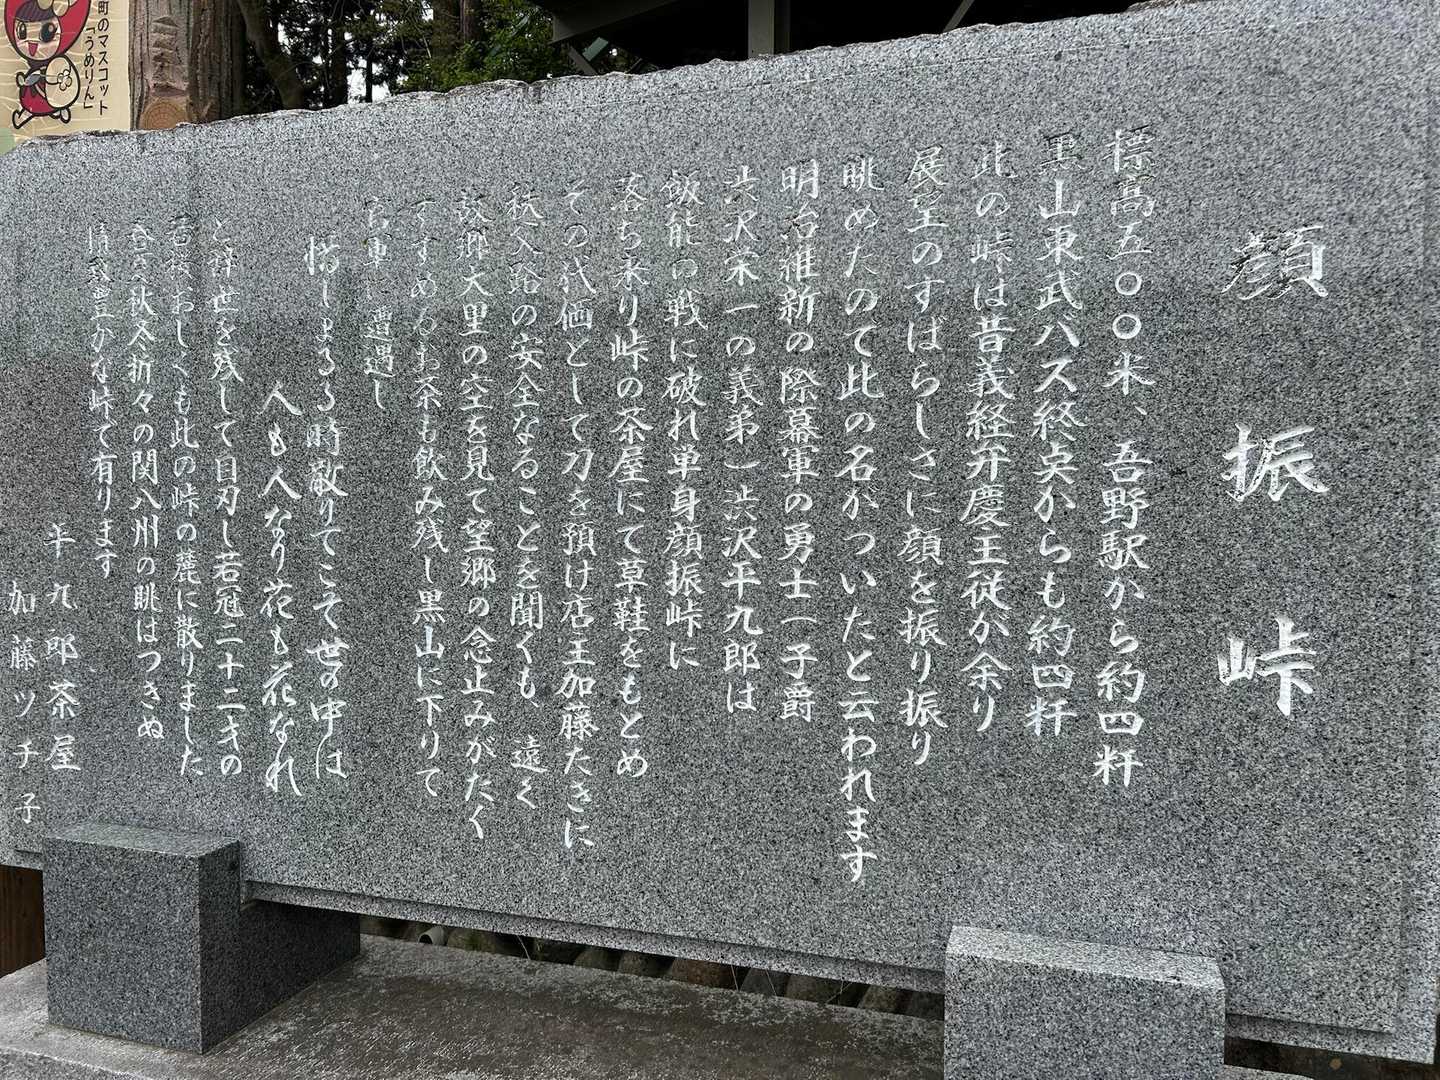 顔振峠
標高五〇〇米、吾野駅から約四粁
黒山東武バス終点からも約四粁
此の峠は昔義経弁慶主従が余り
展望のすばらしさに顔を振り振り
眺めたのて此の名がついたと云われます
明治維新の際幕軍の勇士(子爵
渋沢栄一の義弟)渋沢平九郎は
飯能の戦に破れ単身顔振峠に
落ち来り峠の茶屋にて草鞋をもとめ
その代価として刀を預け店主加藤たきに
秩父路の安全なることを聞くも、遠く
故郷大里の空を見て望郷の念止みがたく
すすめるお茶も飲み残し黒山に下りて
官軍に遭遇し
惜しまるる時散りてこそ世の中は
人も人なり花も花なれ
と辞世を残して自刃し若冠二十二才の
若桜おしくも此の峠の麓に散りました
春夏秋冬折々の関八州の眺はつきぬ
情緒豊かな峠で有ります
平九郎茶屋
加藤ツチ子
町のマスコット
「うめりん」